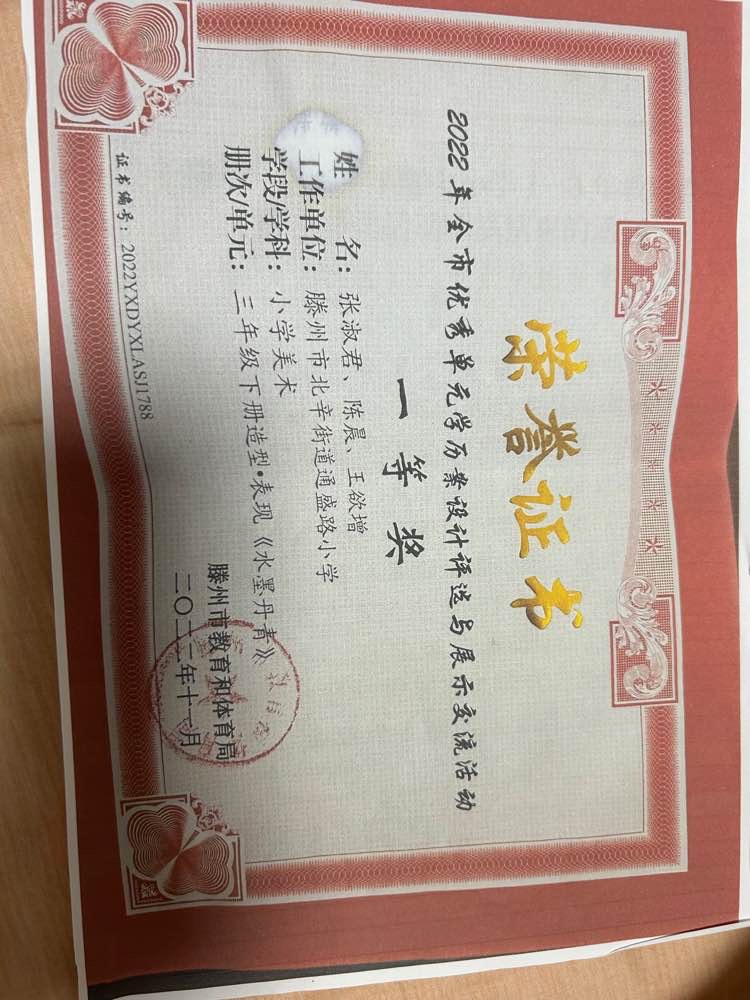 荣誉证书
2022年全市优秀单元学历案设计评选与展示交流活动
一等奖
姓 名：张淑君、陈晨、王欲增
工作单位：滕州市北辛街道通盛路小学
学段/学科：小学美术
册次/单元：三年级下册造型·表现《水墨丹青》
滕州市教育和体育局
二〇二二年十一月
证书编号：2022YXDYXLASJ1788